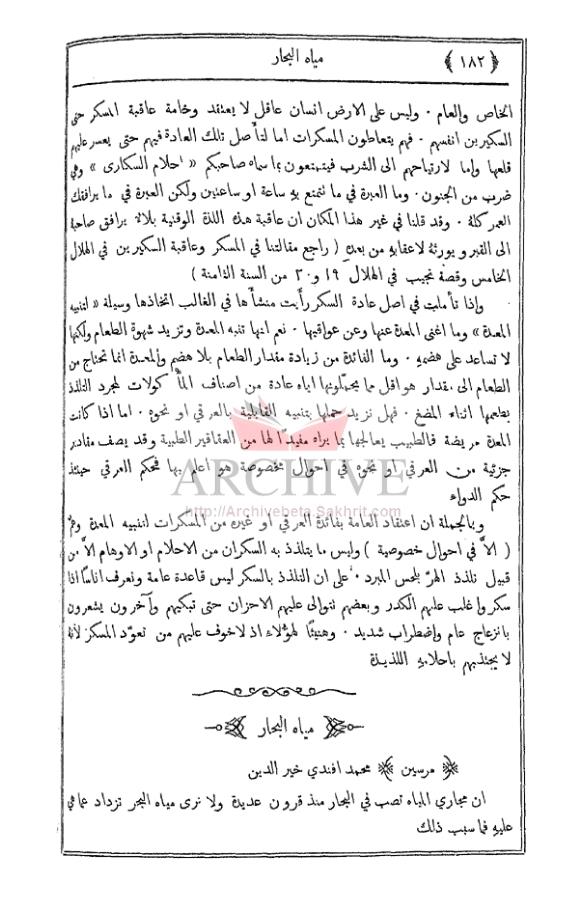 ﴿ ١٨٢ ﴾ مياه البحار
الخاص والعام ٠ وليس على الارض انسان عاقل لا يعتقد وخامة عاقبة المسكر حتى
السكيرين انفسهم ٠ فهم يتعاطون المسكرات اما لتأصل تلك العادة فيهم حتى يعسر عليهم
قلعها واما لارتياحهم الى الشرب فيتمتعون بما سماه صاحبكم « احلام السكارى » وهي
ضرب من الجنون ٠ وما العبرة في ما نتمتع به ساعة او ساعتين ولكن العبرة في ما يرافقك
العمر كلهُ ٠ وقد قلنا في غير هذا المكان ان عاقبة هذه اللذة الوقتية بلاء يرافق صاحبهُ
الى القبر و يورثهُ لاعقابه من بعده ( راجع مقالتنا في المسكر وعاقبة السكيرين في الهلال
الخامس وقصة نجيب في الهلال ١٩ و ٢٠ من السنة الثامنة )
واذا تأملت في اصل عادة السكر رأيت منشأها في الغالب اتخاذها وسيلة « لتنبيه
المعدة » وما اغنى المعدة عنها وعن عواقبها ٠ نعم انها تنبه المعدة وتزيد شهوة الطعام ولكنها
لا تساعد على هضمهِ ٠ وما الفائدة من زيادة مقدار الطعام بلا هضم والمعدة انما تحتاج من
الطعام الى مقدار هو اقل مما يحملونها اياه عادة من اصناف المأكولات لمجرد التلذذ
بطعمها اثناء المضغ ٠ فهل نريد حملها بتنبيه القابلية بالعرقي او نحوه ٠ اما اذا كانت
المعدة مريضة فالطبيب يعالجها بما يراه مفيدًا لها من العقاقير الطبية وقد يصف مقادير
جزئية من العرقي او نحوه في احوال مخصوصة هو اعلم بها فحكم العرقي حينئذ
حكم الدواء
ARCHIVE
http://Archivebeta.Sakhrit.com
وبالجملة ان اعتقاد العامة بفائدة العرقي او غيره من المسكرات لتنبيه المعدة وهمٌ
( الاَّ في احوال خصوصية ) وليس ما يتلذذ به السكران من الاحلام او الاوهام الاَّ من
قبيل تلذذ الهرّ بلحس المبرد ٠ على ان التلذذ بالسكر ليس قاعدة عامة ونعرف اناسًا اذا
سكروا غلب عليهم الكدر و بعضهم تتوالى عليهم الاحزان حتى تبكيهم وآخرون يشعرون
بانزعاج عام واضطراب شديد ٠ وهنيئًا لهؤلاء اذ لاخوف عليهم من تعوّد المسكر لانهُ
لا يجتذبهم باحلامهِ اللذيذة
مياه البحار
﴿ مرسين ﴾ محمد افندي خير الدين
ان مجاري المياه تصب في البحار منذ قرون عديدة ولا نرى مياه البحر تزداد عما هي
عليهِ فما سبب ذلك